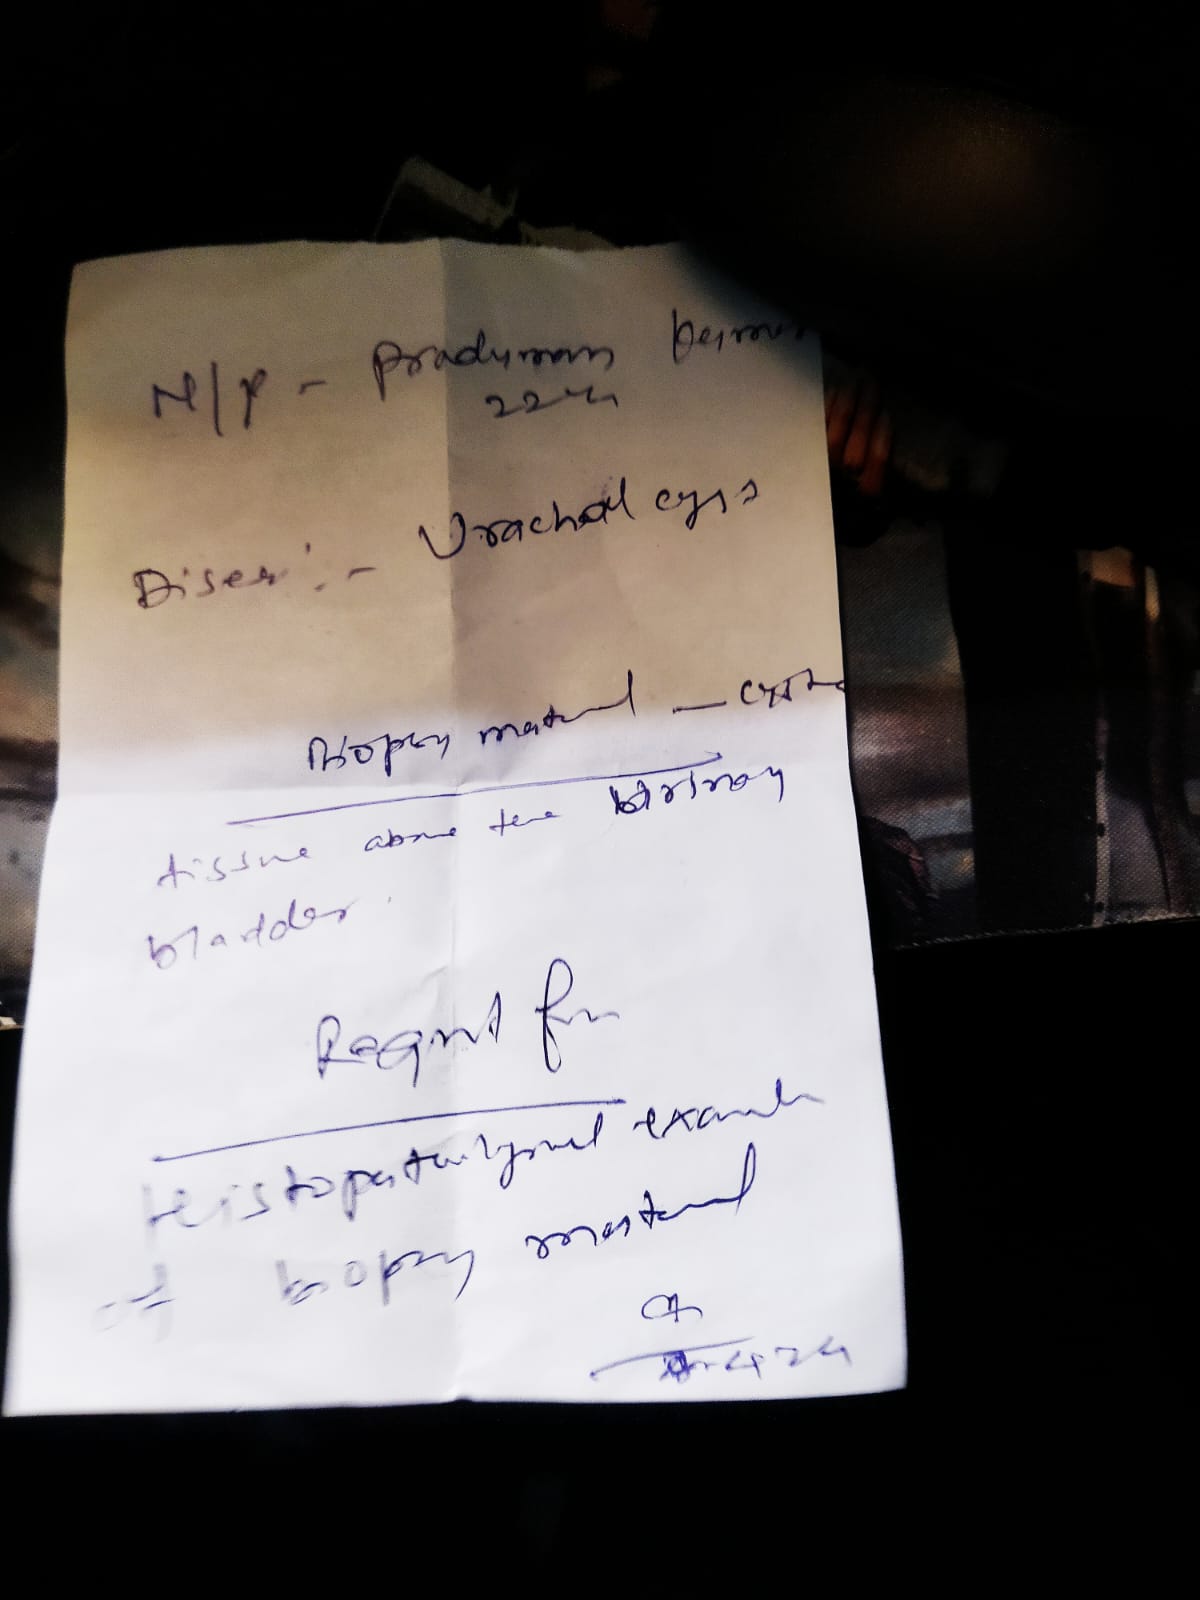 N/P - Praduman Kumar
22 y
Disease :- Urachal cyst
Biopsy material - cystic
tissue above the urinary
bladder.
Request for
Histopathological examination
of biopsy material